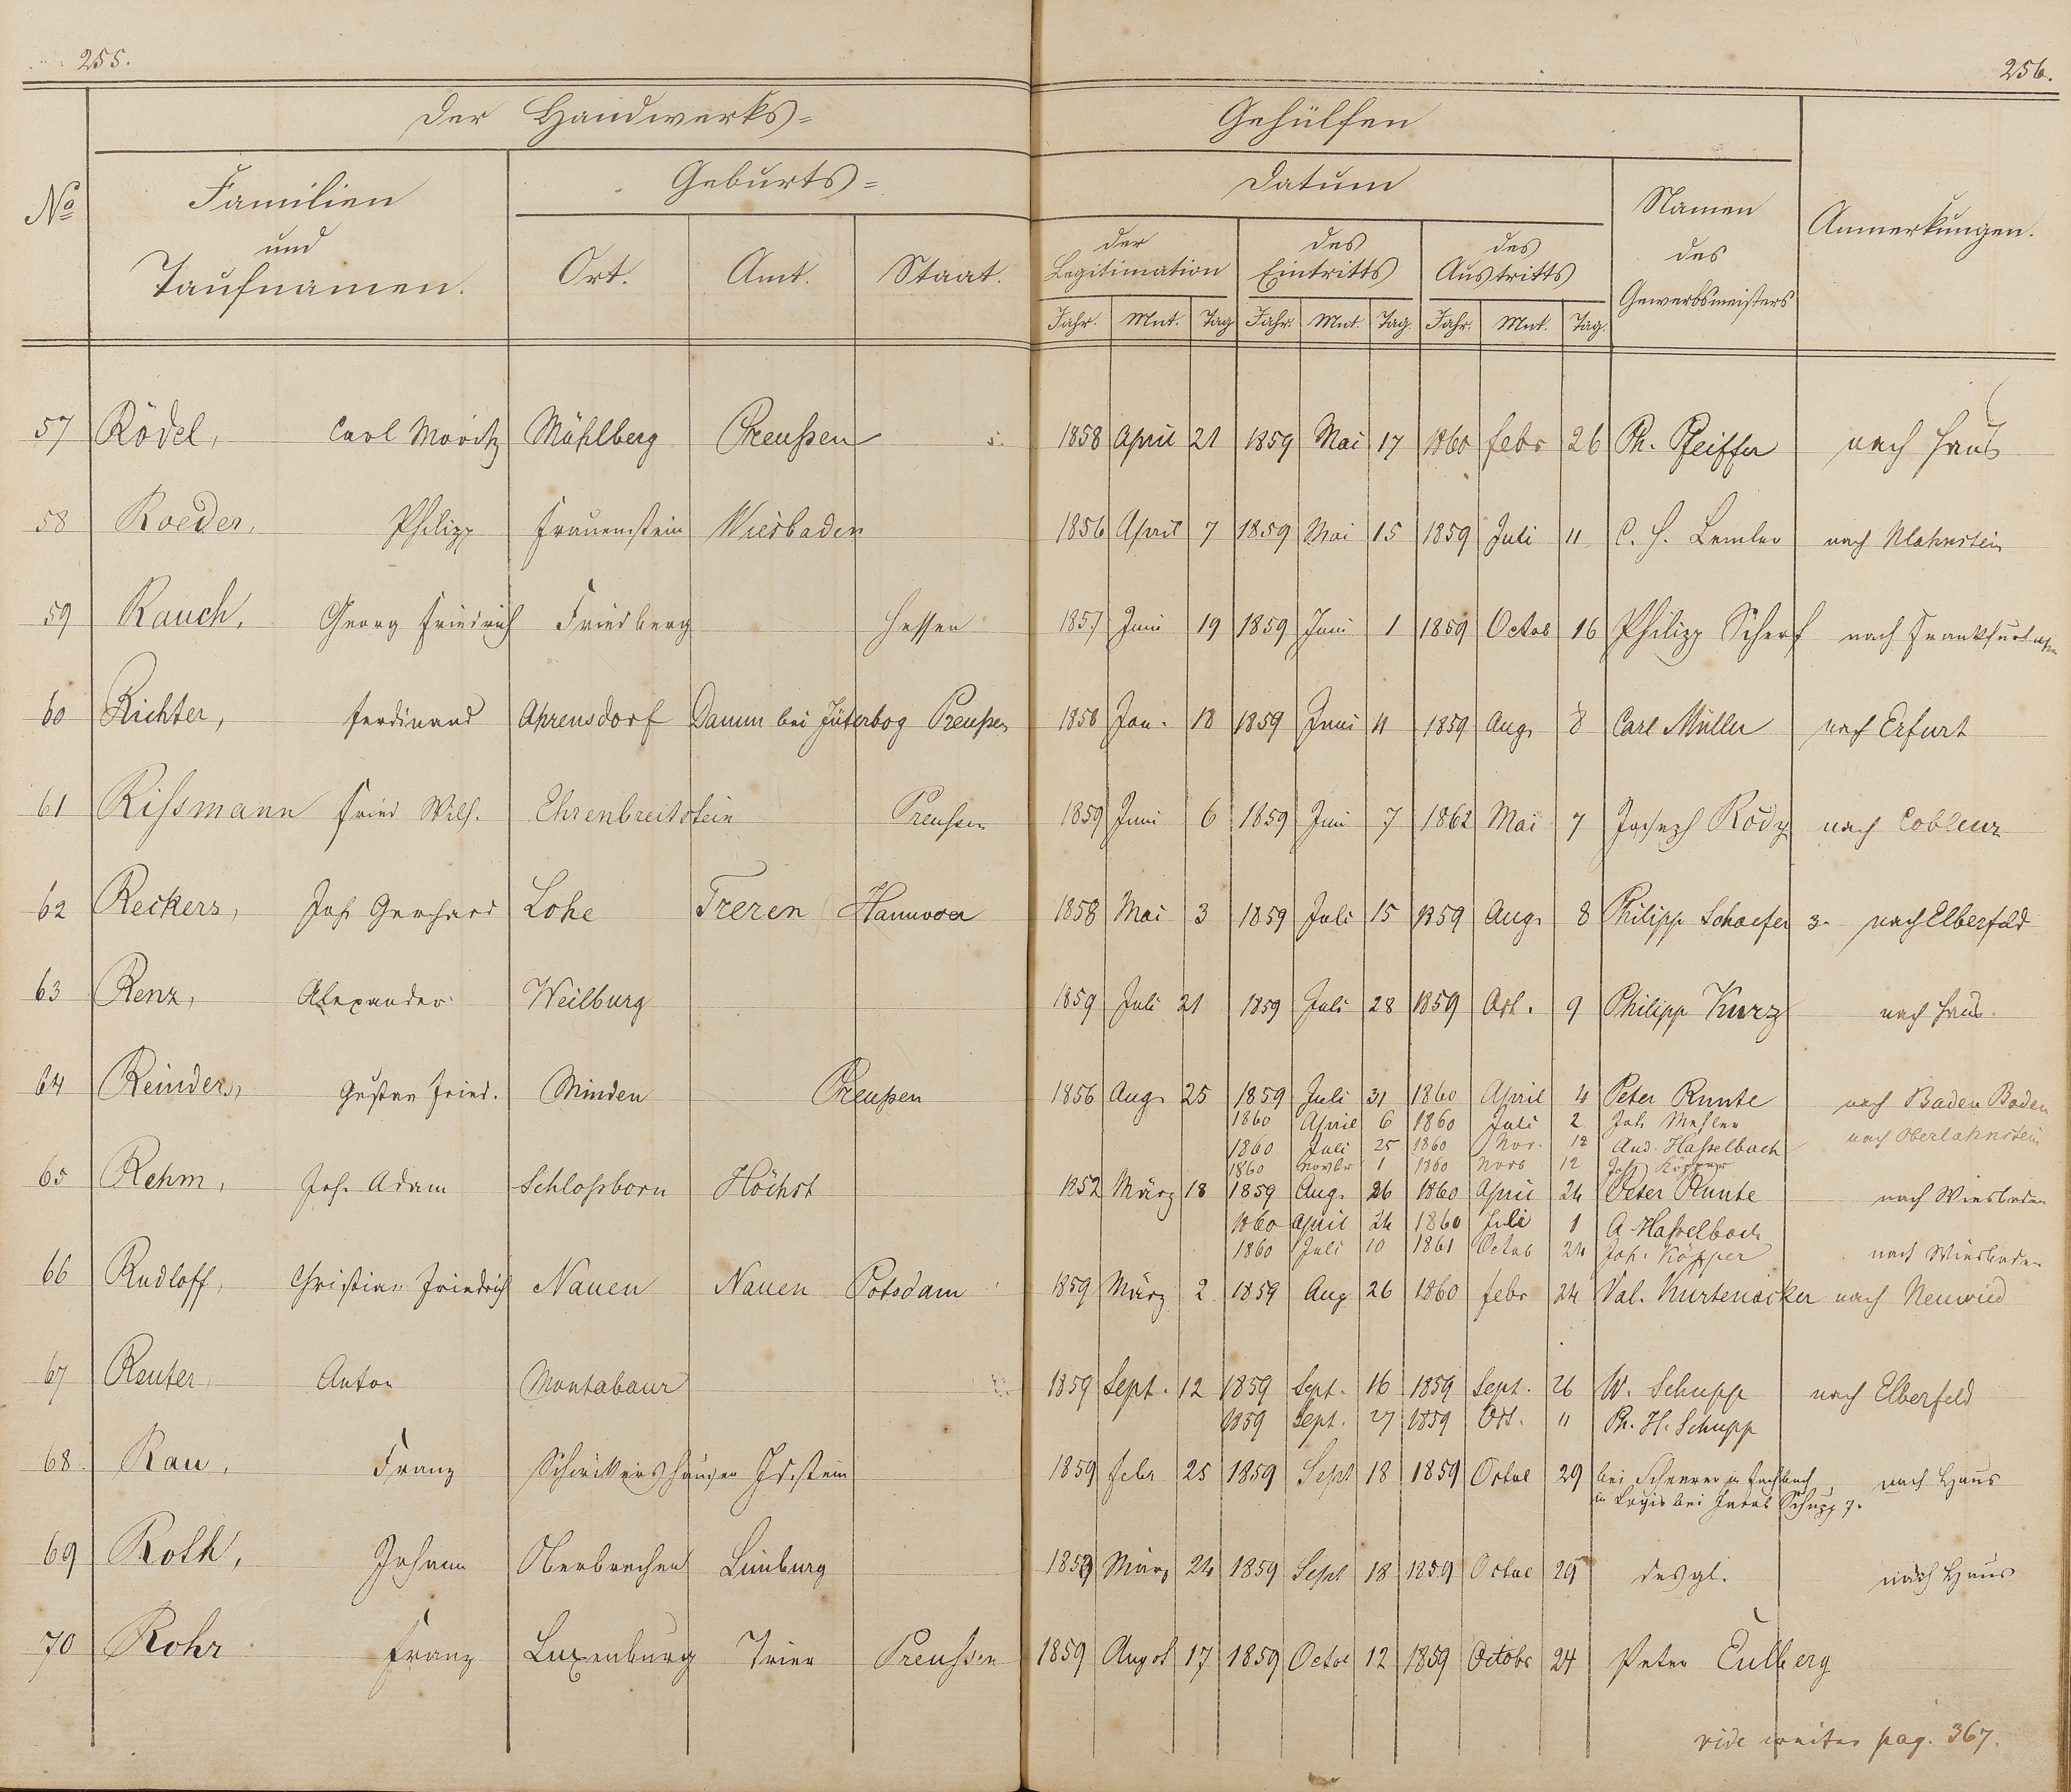 255.
256.
Der Handwerks= Gehülfen
No
Familien und Taufnamen.
Geburts=
Ort. Amt. Staat.
Datum
der Legitimation des Eintritts des Austritts
Jahr. Mnt. Tag Jahr. Mnt. Tag. Jahr. Mnt. Tag.
Namen des Gewerbsmeisters
Anmerkungen.
57 Rödel, Carl Moritz Mühlberg Preußen 1858 April 21 1859 Mai 17 1860 febr 26 Ph. Pfeiffer nach Haus
58 Roeder, Philipp Frauenstein Wiesbaden 1856 April 7 1859 Mai 15 1859 Juli 11 C. H. Lemler nach Nlahnstein
59 Rauch, Georg Friedrich Friedberg Hessen 1857 Juni 19 1859 Juni 1 1859 Octob 16 Philipp Scherf nach Frankfurt
60 Richter, Ferdinand Ahrensdorf Damm bei Jüterbog Preußen 1858 Jan. 18 1859 Juni 11 1859 Aug. 8 Carl Müller nach Erfurt
61 Rissmann Fried Wilh. Ehrenbreitstein Preussen 1859 Juni 6 1859 Juni 7 1862 Mai 7 Joseph Rody nach Coblenz
62 Reckers, Joh Gerhard Lohe Freren Hannover 1858 Mai 3 1859 Juli 15 1859 Aug. 8 Philipp Schaefer 3. nach Elberfeld
63 Renz, Alexander Weilburg 1859 Juli 21 1859 Juli 28 1859 Oct. 9 Philipp Kurz nach Haus.
64 Reinders, Gustav Fried. Minden Preußen 1856 Aug. 25 1859 Juli 31 1860 April 4 Peter Runte nach Baden Baden
1860 April 6 1860 Juli 2 Joh Mehler
1860 Juli 25 1860 Nov. 12 And. Hasselbach nach Oberlahnstein
1860 Novbr 1 1860 Novb 12 Joh Köpper
65 Rehm, Joh. Adam Schlossborn Höchst 1852 März 18 1859 Aug. 26 1860 April 24 Peter Runte nach Wiesbaden
1860 April 24 1860 Juli 1 A. Hasselbach
1860 Juli 10 1861 Octob 24 Joh. Köpper nach Wiesbaden
66 Rudloff, Christian Friedrich Nauen Nauen Potsdam 1859 März 2 1859 Aug 26 1860 febr 24 Val. Kurtenacker nach Neuwied
67 Reuter, Anton Montabaur 1859 Sept. 12 1859 Sept. 16 1859 Sept. 26 W. Schupp nach Elberfeld
1859 Sept. 27 1859 Oct. 11 Ph. H. Schupp
68. Rau, Franz Idstein 1859 febr 25 1859 Sept 18 1859 Octob 29 bei Scheerer in Fachbach nach Haus
in Logis bei Jacob Schupp 7.
69 Roth, Johann Oberbrechen Limburg 1859 März 24 1859 Sept 18 1859 Octob 29 desgl. nach Haus
70 Rohr Franz Luxenburg Trier Preussen 1859 August 17 1859 Octob 12 1859 Octobr 24 Peter Eulberg
vide weiter pag. 367.